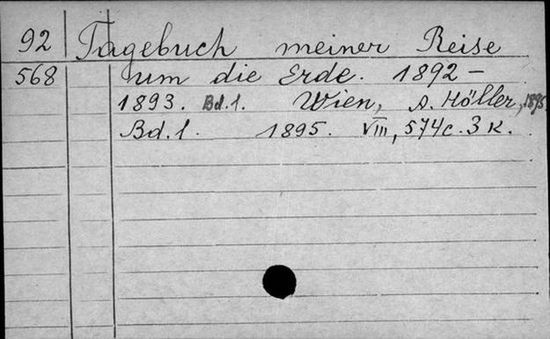 92 Tagebuch meiner Reise
568 um die Erde. 1892 –
1893. Bd. 1. Wien, A. Höller, 1895
Bd. 1. 1895. VIII, 574 с. 3 к.